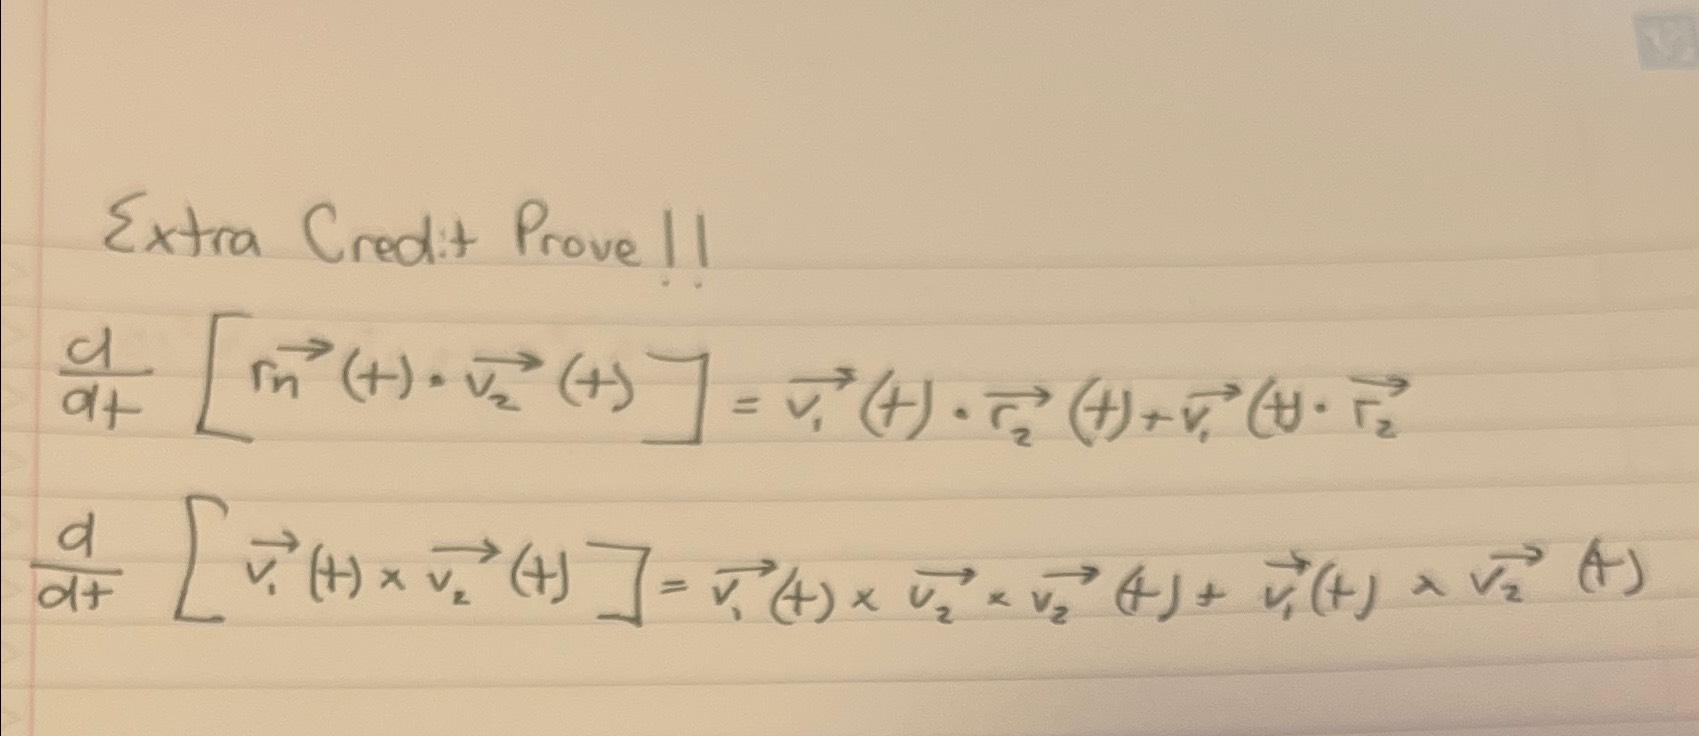 Extra Credit Prove!!
d/dt [r⃗n(t) · v⃗₂(t)] = v⃗₁(t) · r⃗₂(t) + v⃗₁(t) · r⃗₂
d/dt [v⃗₁(t) × v⃗₂(t)] = v⃗₁(t) × v⃗₂ × v⃗₂(t) + v⃗₁(t) × v⃗₂(t)